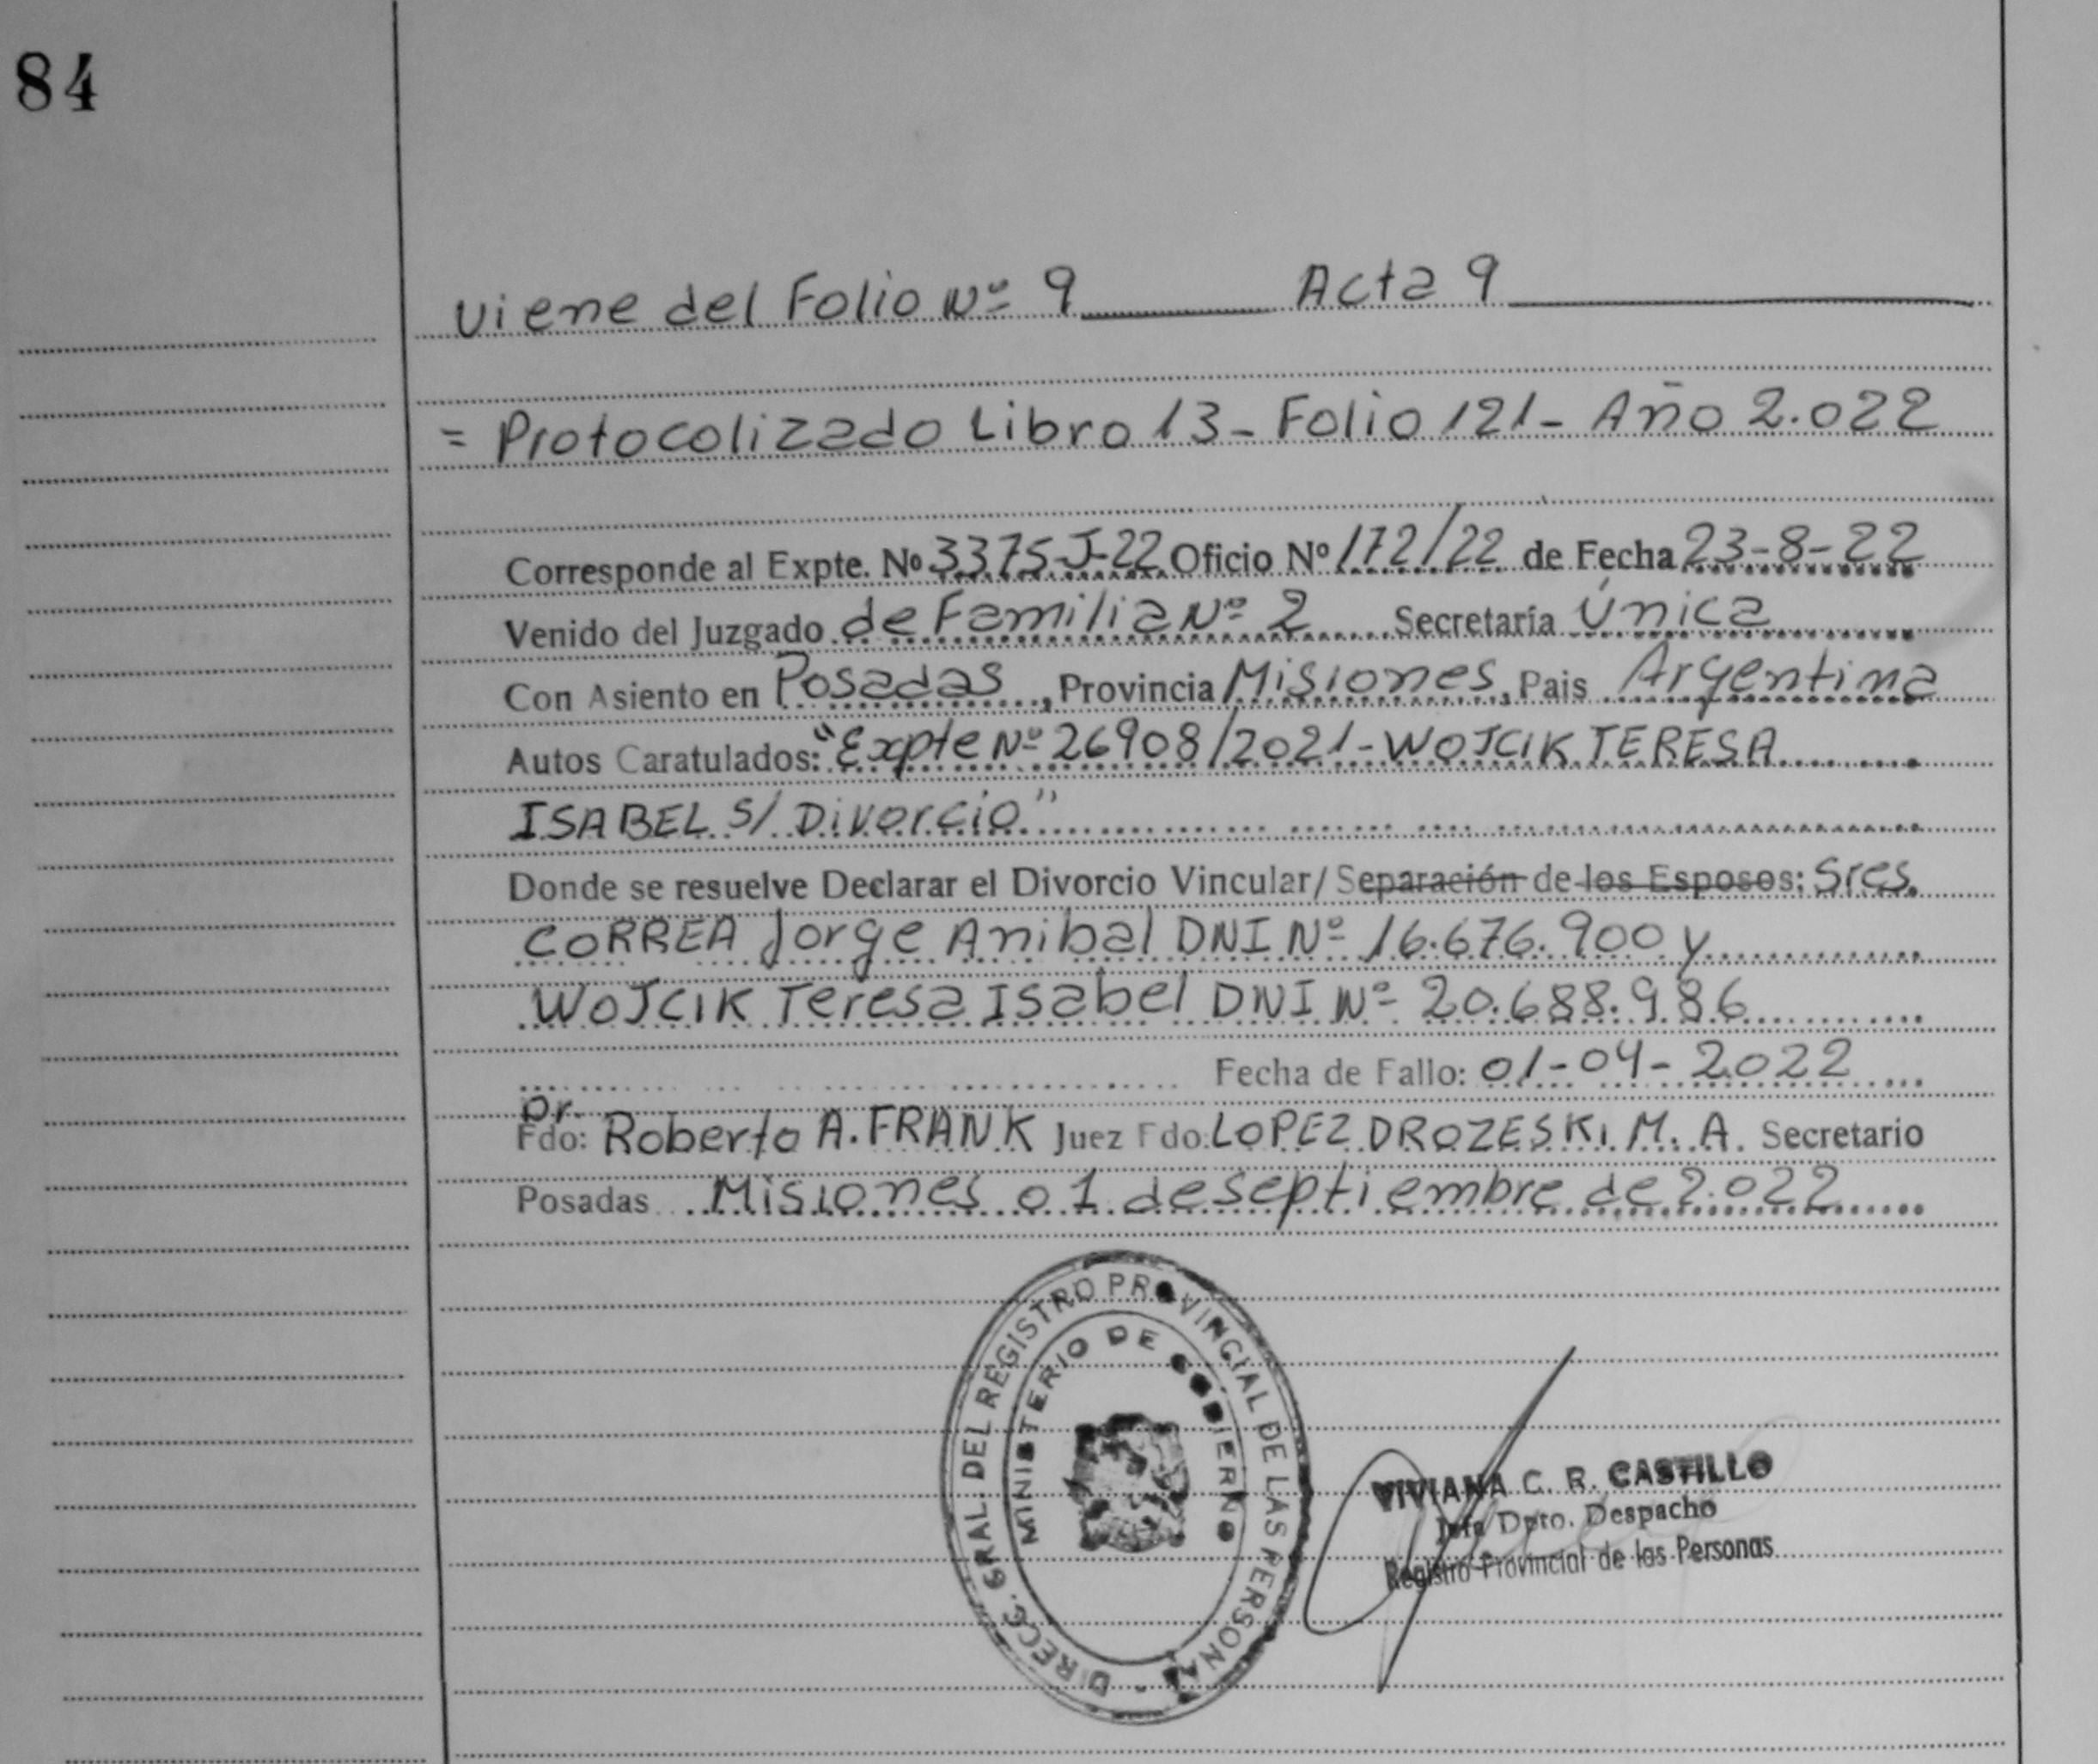 84
Viene del Folio Nº 9 Acta 9
= Protocolizado Libro 13 - Folio 121 - Año 2.022
Corresponde al Expte. No 3375-J-22 Oficio Nº 172/22 de Fecha 23-8-22
Venido del Juzgado de Familia Nº 2 Secretaría Única
Con Asiento en Posadas, Provincia Misiones, Pais Argentina
Autos Caratulados: "Expte Nº 26908/2021 - WOJCIK TERESA
ISABEL S/ Divorcio"
Donde se resuelve Declarar el Divorcio Vincular/ Separación de los Esposos: Sres.
CORREA Jorge Anibal DNI Nº 16.676.900 y
WOJCIK Teresa Isabel DNI Nº 20.688.986
Fecha de Fallo: 01-04-2022
Dr.
Fdo: Roberto A. FRANK Juez Fdo: LOPEZ DROZESKI. M. A. Secretario
Posadas Misiones 01 de septiembre de 2.022
DIRECC. GRAL. DEL REGISTRO PROVINCIAL DE LAS PERSONAS
MINISTERIO DE GOBIERNO
VIVIANA C. R. CASTILLO
Jefa Dpto. Despacho
Registro Provincial de las Personas